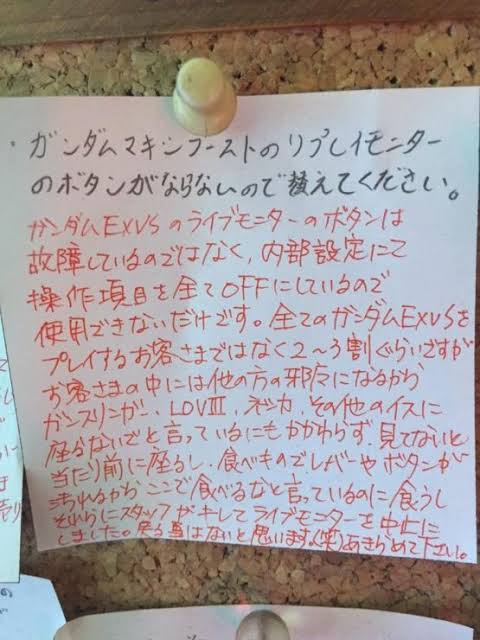 ガンダムマキシブーストのリプレイモニター
のボタンがならないので替えてください。
ガンダムEXVSのライブモニターのボタンは
故障しているのではなく、内部設定にて
操作項目を全てOFFにしているので
使用できないだけです。全てのガンダムEXVSを
プレイするお客さまではなく2〜3割ぐらいですが
お客さまの中には他の方の邪魔になるから
ガンスリンガー、LOVIII、ボーカ、その他のイスに
座らないでと言っているにもかかわらず、見てないと
当たり前に座るし、食べものでレバーやボタンが
汚れるからここで食べるなと言っているのに食うし
それらにスタッフがキレてライブモニターを中止に
しました。戻る事はないと思います。(笑)あきらめて下さい。